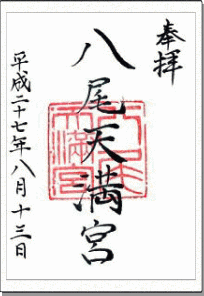 奉拝
八尾天満宮
平成二十七年八月十三日